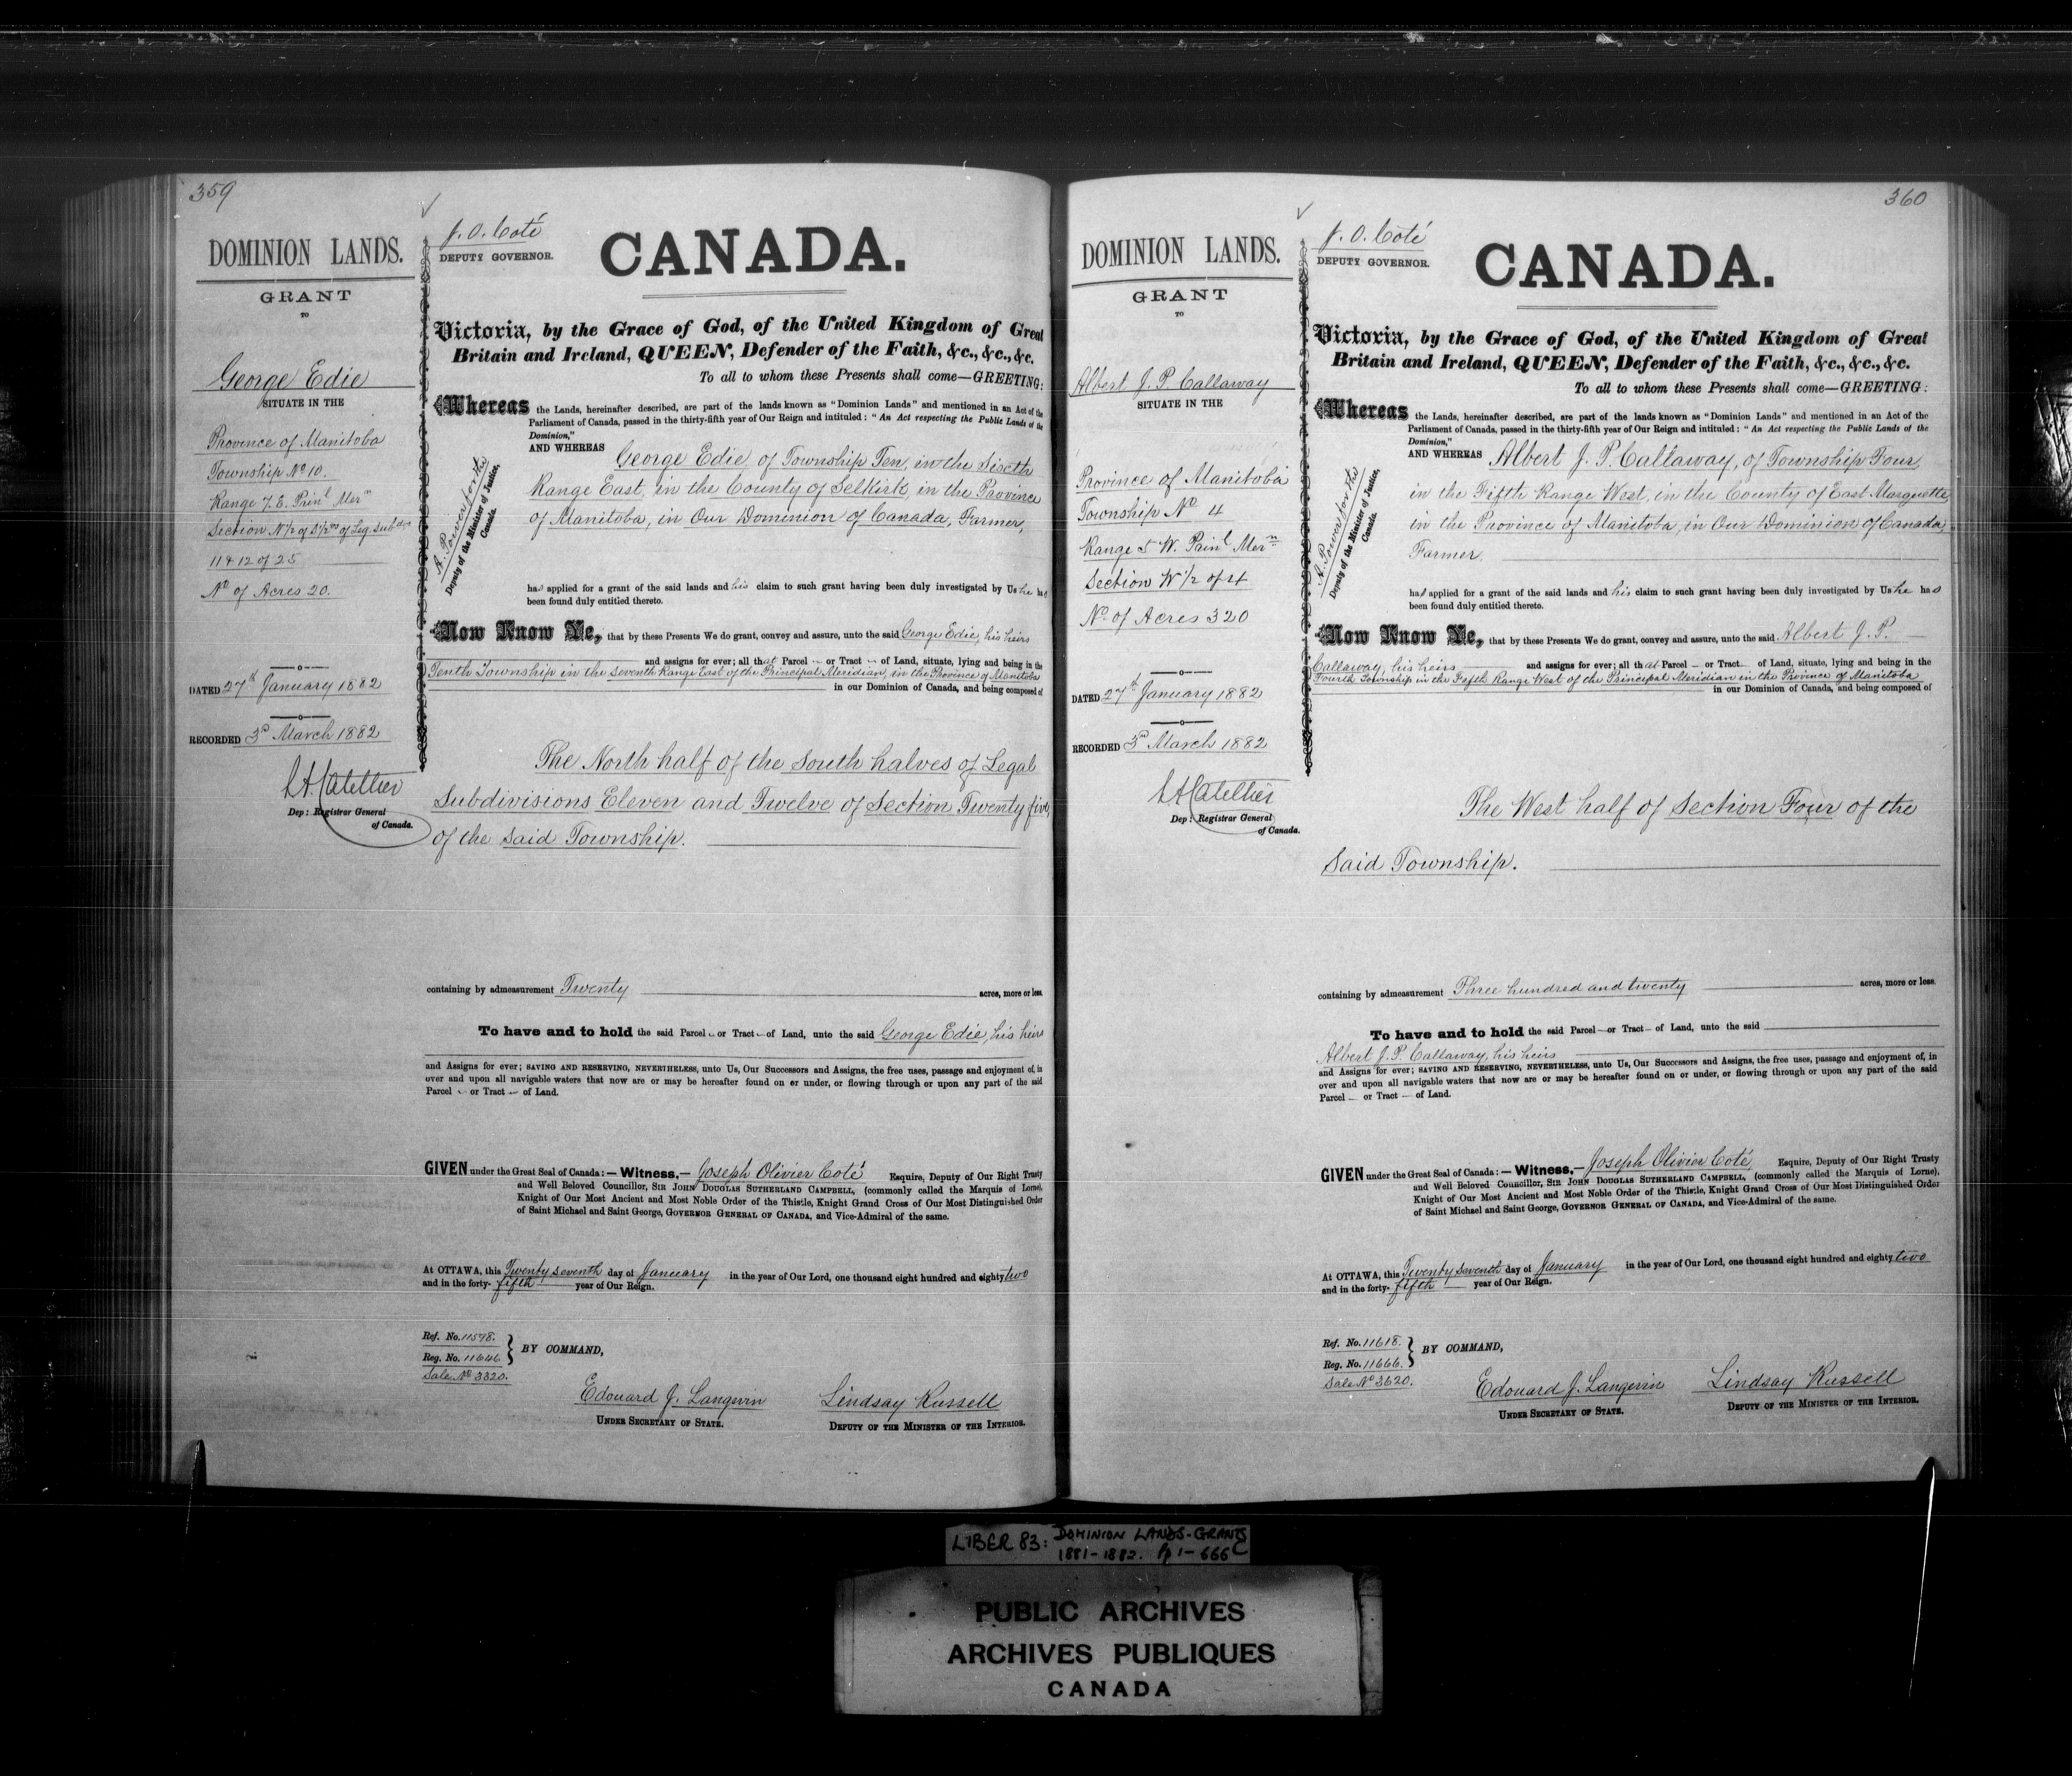 359
DOMINION LANDS.
GRANT
TO
George Edie
SITUATE IN THE
Province of Manitoba
Township No 10.
Range 7. E. Prinl Mern
Section N 1/2 of S 1/2ves of Leg. Subdns
11 & 12 of 25
No of Acres 20.
DATED 27th January 1882
RECORDED 3rd March 1882
Dep: Registrar General
of Canada.
J. O. Coté
DEPUTY GOVERNOR.
CANADA.
A. Power for the
Deputy of the Minister of Justice,
Canada.
Victoria, by the Grace of God, of the United Kingdom of Great
Britain and Ireland, QUEEN, Defender of the Faith, &c., &c., &c.
To all to whom these Presents shall come—GREETING:
Whereas the Lands, hereinafter described, are part of the lands known as "Dominion Lands" and mentioned in an Act of the
Parliament of Canada, passed in the thirty-fifth year of Our Reign and intituled: "An Act respecting the Public Lands of the
Dominion,"
AND WHEREAS George Edie, of Township Ten, in the Sixth
Range East, in the County of Selkirk, in the Province
of Manitoba, in Our Dominion of Canada, Farmer,
has applied for a grant of the said lands and his claim to such grant having been duly investigated by Us he has
been found duly entitled thereto.
Now Know Ye, that by these Presents We do grant, convey and assure, unto the said George Edie, his heirs
and assigns for ever; all that Parcel – or Tract – of Land, situate, lying and being in the
Tenth Township in the Seventh Range East of the Principal Meridian, in the Province of Manitoba
in our Dominion of Canada, and being composed of
The North half of the South halves of Legal
Subdivisions Eleven and Twelve of Section Twenty five,
of the said Township.
containing by admeasurement Twenty acres, more or less.
To have and to hold the said Parcel – or Tract – of Land, unto the said George Edie, his heirs
and Assigns for ever; SAVING AND RESERVING, NEVERTHELESS, unto Us, Our Successors and Assigns, the free uses, passage and enjoyment of, in
over and upon all navigable waters that now are or may be hereafter found on or under, or flowing through or upon any part of the said
Parcel – or Tract – of Land.
GIVEN under the Great Seal of Canada:—Witness,— Joseph Olivier Coté Esquire, Deputy of Our Right Trusty
and Well Beloved Councillor, SIR JOHN DOUGLAS SUTHERLAND CAMPBELL, (commonly called the Marquis of Lorne),
Knight of Our Most Ancient and Most Noble Order of the Thistle, Knight Grand Cross of Our Most Distinguished Order
of Saint Michael and Saint George, GOVERNOR GENERAL OF CANADA, and Vice-Admiral of the same.
At OTTAWA, this Twenty seventh day of January in the year of Our Lord, one thousand eight hundred and eighty two
and in the forty-fifth year of Our Reign.
Ref. No. 11598.
Reg. No. 11646
Sale No 3320.
BY COMMAND,
Edouard J. Langevin
UNDER SECRETARY OF STATE.
Lindsay Russell
DEPUTY OF THE MINISTER OF THE INTERIOR.
360
DOMINION LANDS.
GRANT
TO
Albert J. P. Callaway
SITUATE IN THE
Province of Manitoba
Township No 4
Range 5 W. Prinl Mern
Section W 1/2 of 4
No of Acres 320
DATED 27th January 1882
RECORDED 3rd March 1882
Dep: Registrar General
of Canada.
J. O. Coté
DEPUTY GOVERNOR.
CANADA.
A. Power for the
Deputy of the Minister of Justice,
Canada.
Victoria, by the Grace of God, of the United Kingdom of Great
Britain and Ireland, QUEEN, Defender of the Faith, &c., &c., &c.
To all to whom these Presents shall come—GREETING:
Whereas the Lands, hereinafter described, are part of the lands known as "Dominion Lands" and mentioned in an Act of the
Parliament of Canada, passed in the thirty-fifth year of Our Reign and intituled: "An Act respecting the Public Lands of the
Dominion,"
AND WHEREAS Albert J. P. Callaway, of Township Four,
in the Fifth Range West, in the County of East Marquette,
in the Province of Manitoba, in Our Dominion of Canada,
Farmer
has applied for a grant of the said lands and his claim to such grant having been duly investigated by Us he has
been found duly entitled thereto.
Now Know Ye, that by these Presents We do grant, convey and assure, unto the said Albert J. P.
Callaway, his heirs and assigns for ever; all that Parcel – or Tract – of Land, situate, lying and being in the
Fourth Township in the Fifth Range West of the Principal Meridian in the Province of Manitoba
in our Dominion of Canada, and being composed of
The West half of Section Four of the
said Township.
containing by admeasurement Three hundred and twenty acres, more or less.
To have and to hold the said Parcel – or Tract – of Land, unto the said
Albert J. P. Callaway, his heirs
and Assigns for ever; SAVING AND RESERVING, NEVERTHELESS, unto Us, Our Successors and Assigns, the free uses, passage and enjoyment of, in
over and upon all navigable waters that now are or may be hereafter found on or under, or flowing through or upon any part of the said
Parcel – or Tract – of Land.
GIVEN under the Great Seal of Canada:—Witness,— Joseph Olivier Coté, Esquire, Deputy of Our Right Trusty
and Well Beloved Councillor, SIR JOHN DOUGLAS SUTHERLAND CAMPBELL, (commonly called the Marquis of Lorne),
Knight of Our Most Ancient and Most Noble Order of the Thistle, Knight Grand Cross of Our Most Distinguished Order
of Saint Michael and Saint George, GOVERNOR GENERAL OF CANADA, and Vice-Admiral of the same.
At OTTAWA, this Twenty seventh day of January in the year of Our Lord, one thousand eight hundred and eighty two
and in the forty-fifth year of Our Reign.
Ref. No. 11618.
Reg. No. 11666.
Sale No 3620.
BY COMMAND,
Edouard J. Langevin
UNDER SECRETARY OF STATE.
Lindsay Russell
DEPUTY OF THE MINISTER OF THE INTERIOR.
LIBER 83: DOMINION LANDS-GRANTS
1881-1882. Pp 1-666
PUBLIC ARCHIVES
ARCHIVES PUBLIQUES
CANADA